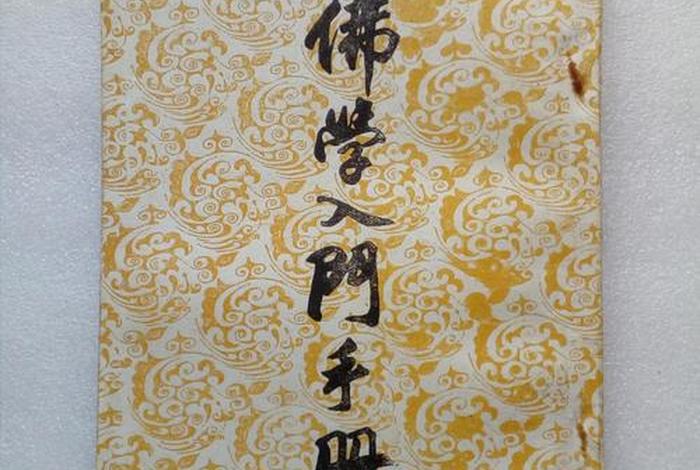 佛學入門手冊